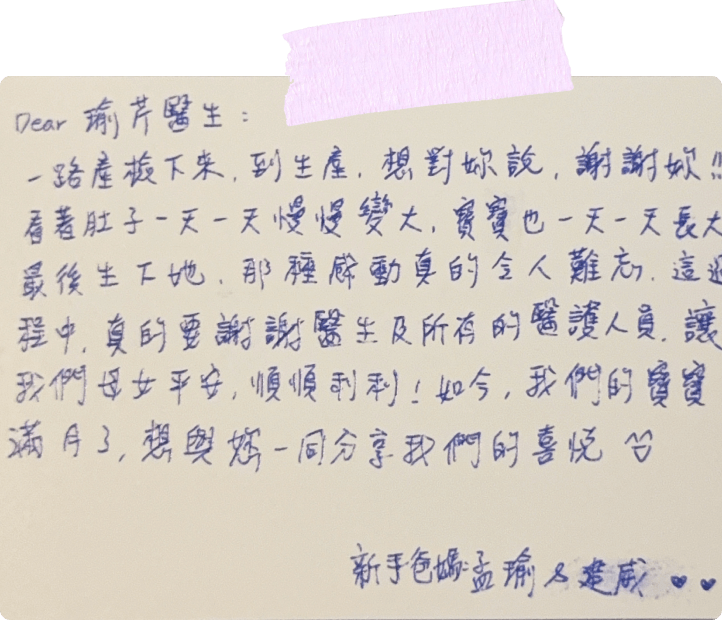 Dear 瑜芹醫生：
一路產檢下來，到生產，想對妳說，謝謝妳!!
看著肚子一天一天慢慢變大，寶寶也一天一天長大
最後生下她，那種感動真的令人難忘，這過
程中，真的要謝謝醫生及所有的醫護人員，讓
我們母女平安，順順利利！如今，我們的寶寶
滿月了，想與您一同分享我們的喜悅
新手爸媽：孟瑜 & 建威 ♥♥